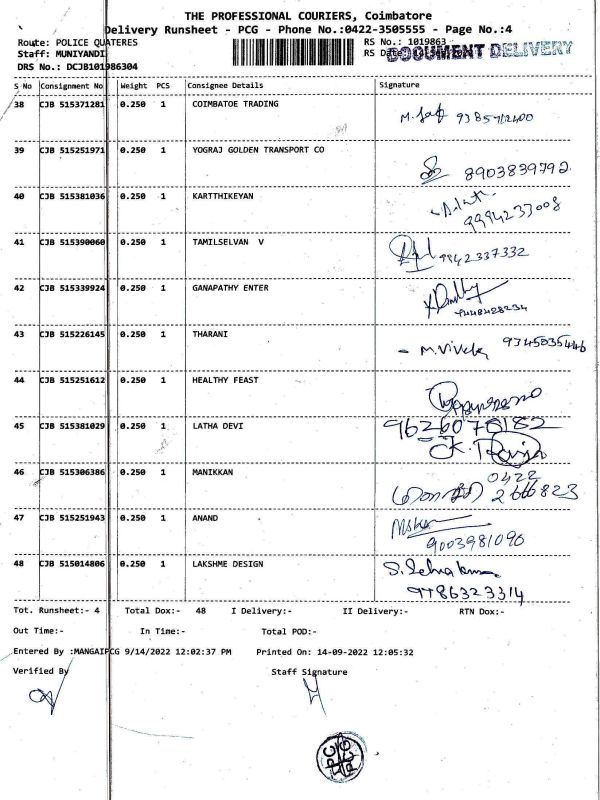 THE PROFESSIONAL COURIERS, Coimbatore
Delivery Runsheet - PCG - Phone No.:0422-3505555 - Page No.:4
Route: POLICE QUATERES
RS No.: 1019863
Staff: MUNIYANDI
RS Date:
DOCUMENT DELIVERY
DRS No.: DCJB101986304
S No Consignment No Weight PCS Consignee Details Signature
38 CJB 515371281 0.250 1 COIMBATOE TRADING
39 CJB 515251971 0.250 1 YOGRAJ GOLDEN TRANSPORT CO 8903839792
40 CJB 515381036 0.250 1 KARTTHIKEYAN 9994237008
41 CJB 515390060 0.250 1 TAMILSELVAN V 9942337332
42 CJB 515339924 0.250 1 GANAPATHY ENTER
43 CJB 515226145 0.250 1 THARANI - M.Vivek 9345035446
44 CJB 515251612 0.250 1 HEALTHY FEAST
45 CJB 515381029 0.250 1 LATHA DEVI 9626078182
46 CJB 515306386 0.250 1 MANIKKAN 0422
47 CJB 515251943 0.250 1 ANAND 9003981090
48 CJB 515014806 0.250 1 LAKSHME DESIGN 9786323314
Tot. Runsheet:- 4 Total Dox:- 48 I Delivery:- II Delivery:- RTN Dox:-
Out Time:- In Time:- Total POD:-
Entered By :MANGAIPCG 9/14/2022 12:02:37 PM Printed On: 14-09-2022 12:05:32
Verified By Staff Signature